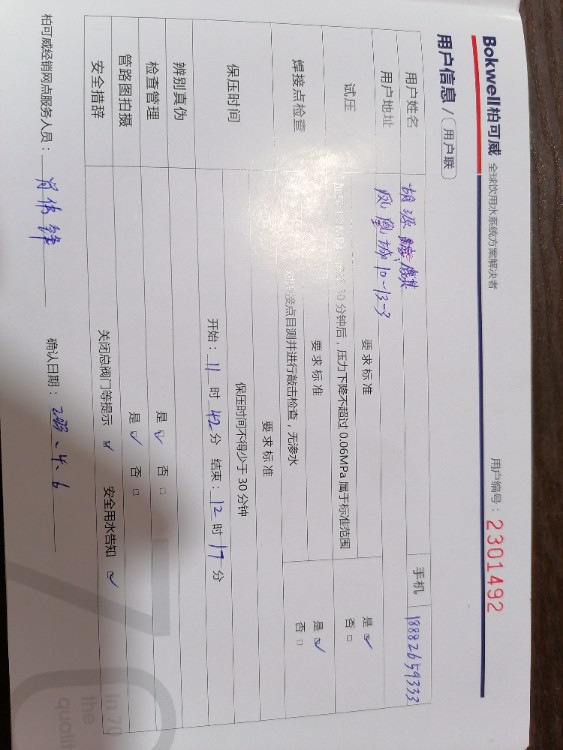 Bokwell柏可威 全球饮用水系统方案解决者
用户编号：2301492
用户信息 / 用户联
用户姓名 胡源 麒 手机 18882659333
用户地址 凤凰城10-13-3
试压 要求标准 是☑
30分钟后，压力下降不超过0.06MPa属于标准范围 否□
焊接点检查 要求标准 是☑
接点目测并进行敲击检查，无渗水 否□
保压时间 要求标准
保压时间不得少于30分钟
开始：11时42分 结束：12时17分
辨别真伪
检查管理 是☑ 否□
管路图拍摄 是☑ 否□
安全措辞 关闭总阀门等提示☑ 安全用水告知☑
柏可威经销网点服务人员：肖伟锋 确认日期：2023.4.6
in 70
the
qualit